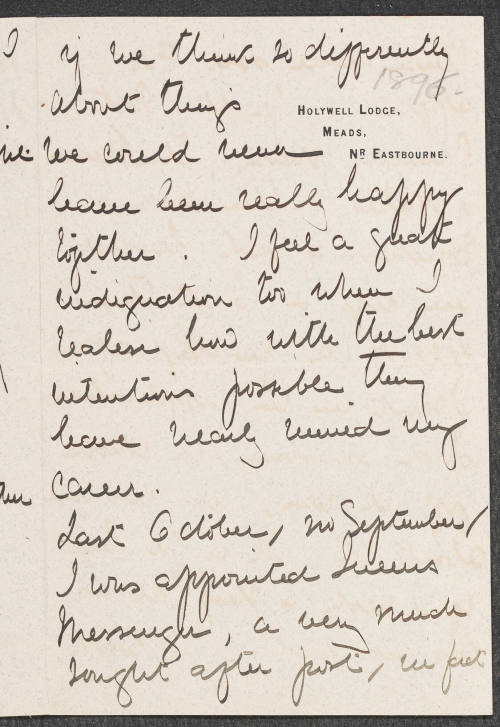 if we think so differently
1896.
about things
HOLYWELL LODGE,
MEADS,
NR EASTBOURNE.
we could never
have been really happy
together. I feel a great
indignation too when I
realise how with the best
intentions possible they
have nearly ruined my
career.
Last October, no September,
I was appointed Queens
Messenger, a very much
sought after post, in fact